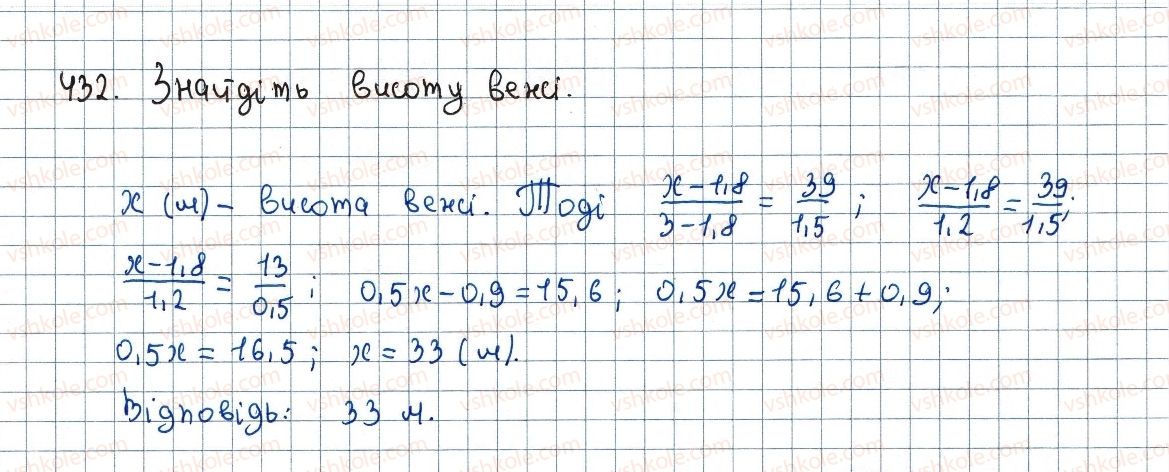 432. Знайдіть висоту вежі.
x (м) – висота вежі. Тоді (x-1,8)/(3-1,8) = 39/1,5; (x-1,8)/1,2 = 39/1,5;
(x-1,8)/1,2 = 13/0,5; 0,5x - 0,9 = 15,6; 0,5x = 15,6 + 0,9;
0,5x = 16,5; x = 33 (м).
Відповідь: 33 м.